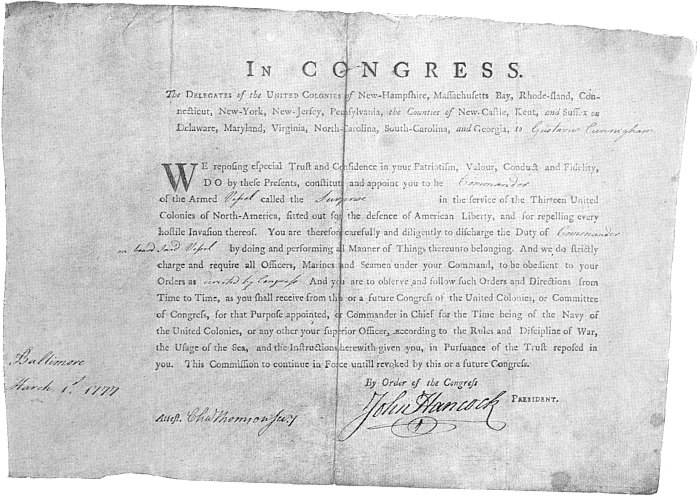 IN CONGRESS.
The DELEGATES of the UNITED COLONIES of New-Hampshire, Massachusetts Bay, Rhode-Island, Con-
necticut, New-York, New-Jersey, Pennsylvania, the Counties of New-Castle, Kent, and Sussex on
Delaware, Maryland, Virginia, North-Carolina, South-Carolina, and Georgia, to Gustavus Cunnigham
WE reposing especial Trust and Confidence in your Patriotism, Valour, Conduct and Fidelity,
DO by these Presents, constitute and appoint you to be Commander
of the Armed Vessel called the Surprise in the service of the Thirteen United
Colonies of North-America, fitted out for the defence of American Liberty, and for repelling every
hostile Invasion thereof. You are therefore carefully and diligently to discharge the Duty of Commander
on board said Vessel by doing and performing all Manner of Things thereunto belonging. And we do strictly
charge and require all Officers, Marines and Seamen under your Command, to be obedient to your
Orders as directed by Congress And you are to observe and follow such Orders and Directions from
Time to Time, as you shall receive from this or a future Congress of the United Colonies, or Committee
of Congress, for that Purpose appointed, or Commander in Chief for the Time being of the Navy of
the United Colonies, or any other your superior Officer, according to the Rules and Discipline of War,
the Usage of the Sea, and the Instructions herewith given you, in Pursuance of the Trust reposed in
you. This Commission to continue in Force untill revoked by this or a future Congress.
Baltimore
March 1st 1777
By Order of the Congress
John Hancock PRESIDENT.
Attest. Cha Thomson secy